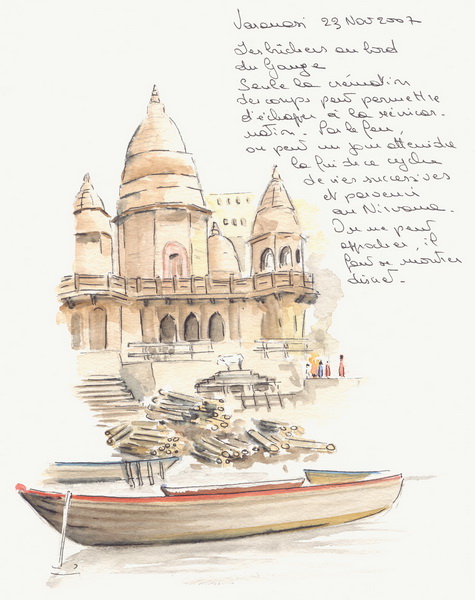 Varanasi 23 Nov 2007
Les bûchers au bord
du Gange
Seule la crémation
des corps peut permettre
d'échapper à la réincar-
nation. Par le feu,
on peut un jour atteindre
la fin de ce cycle
de vies successives
et parvenir
au Nirvana.
On ne peut
approcher, il
faut se montrer
discret.